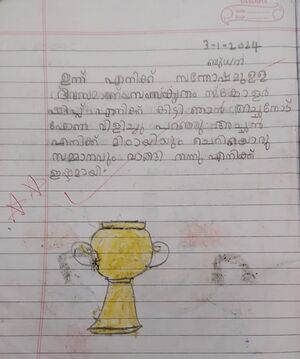 3-1-2024
ബുധൻ
ഇന്ന് എനിക്ക് സന്തോഷമുള്ള
ദിവസമാണ് സംസ്കൃതം സ്കോളർ
ഷിപ്പ് എനിക്ക് കിട്ടി ഞാൻ അച്ചനോട്
ഫോൺ വിളിച്ചു പറഞ്ഞു അച്ചൻ
എനിക്ക് മിഠായിയും ചെറിയൊരു
സമ്മാനവും വാങ്ങി തന്നു എനിക്ക്
ഇഷ്ടമായി.